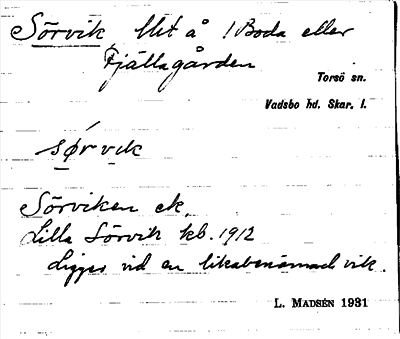 Sörvik, lht å 1 Boda eller
Fjällagården
Torsö sn.
Vadsbo hd. Skar. l.
sørvik
Sörviken ek.
Lilla Sörvik kb. 1912
Ligger vid en likabenämnd vik.
L. MADSÉN 1931